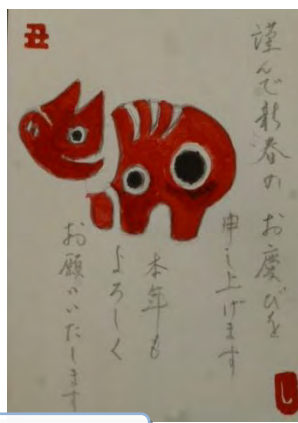 丑
謹んで新春のお慶びを
申し上げます
本年も
よろしく
お願いいたします
し